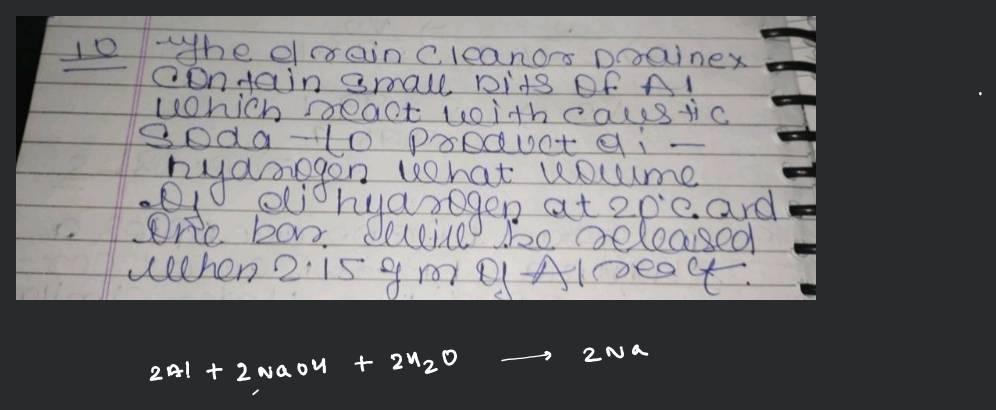 10 The drain cleanor Drainex
contain small bits of Al
which react with caustic
soda to product di-
hydrogen what volume
of di hydrogen at 20°c and
One bar will be released
when 2.15 gm of Al react.
2Al + 2NaOH + 2H2O → 2Na